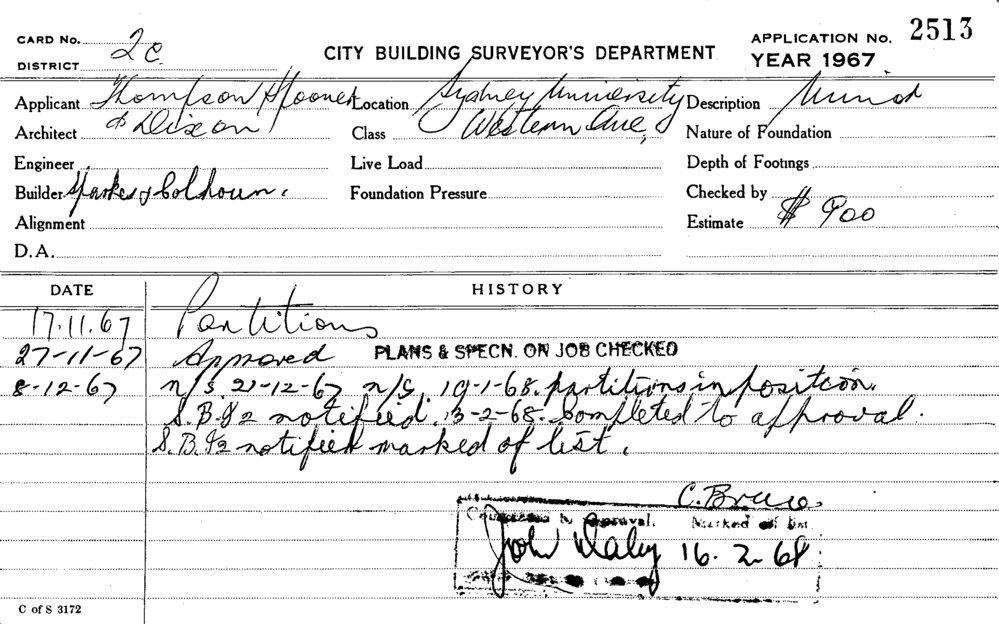 CARD No. 2c
DISTRICT
CITY BUILDING SURVEYOR'S DEPARTMENT
APPLICATION No. 2513
YEAR 1967
Applicant Thompson Spooner
Location Sydney University
Description Minor
Architect & Dixon
Class Western Ave,
Nature of Foundation
Engineer
Live Load
Depth of Footings
Builder Sparkes & Colhoun.
Foundation Pressure
Checked by
Alignment
Estimate $ 900
D.A.
DATE HISTORY
17.11.67 Partitions
27-11-67 Approved PLANS & SPECN. ON JOB CHECKED
8-12-67 n/s. 21-12-67 n/s. 19-1-68. partitions in position.
notified. 13-2-68. Completed to approval.
notified marked of list.
C. Bruce.
to Approval. Marked off list
John Daley 16-2-68
C of S 3172